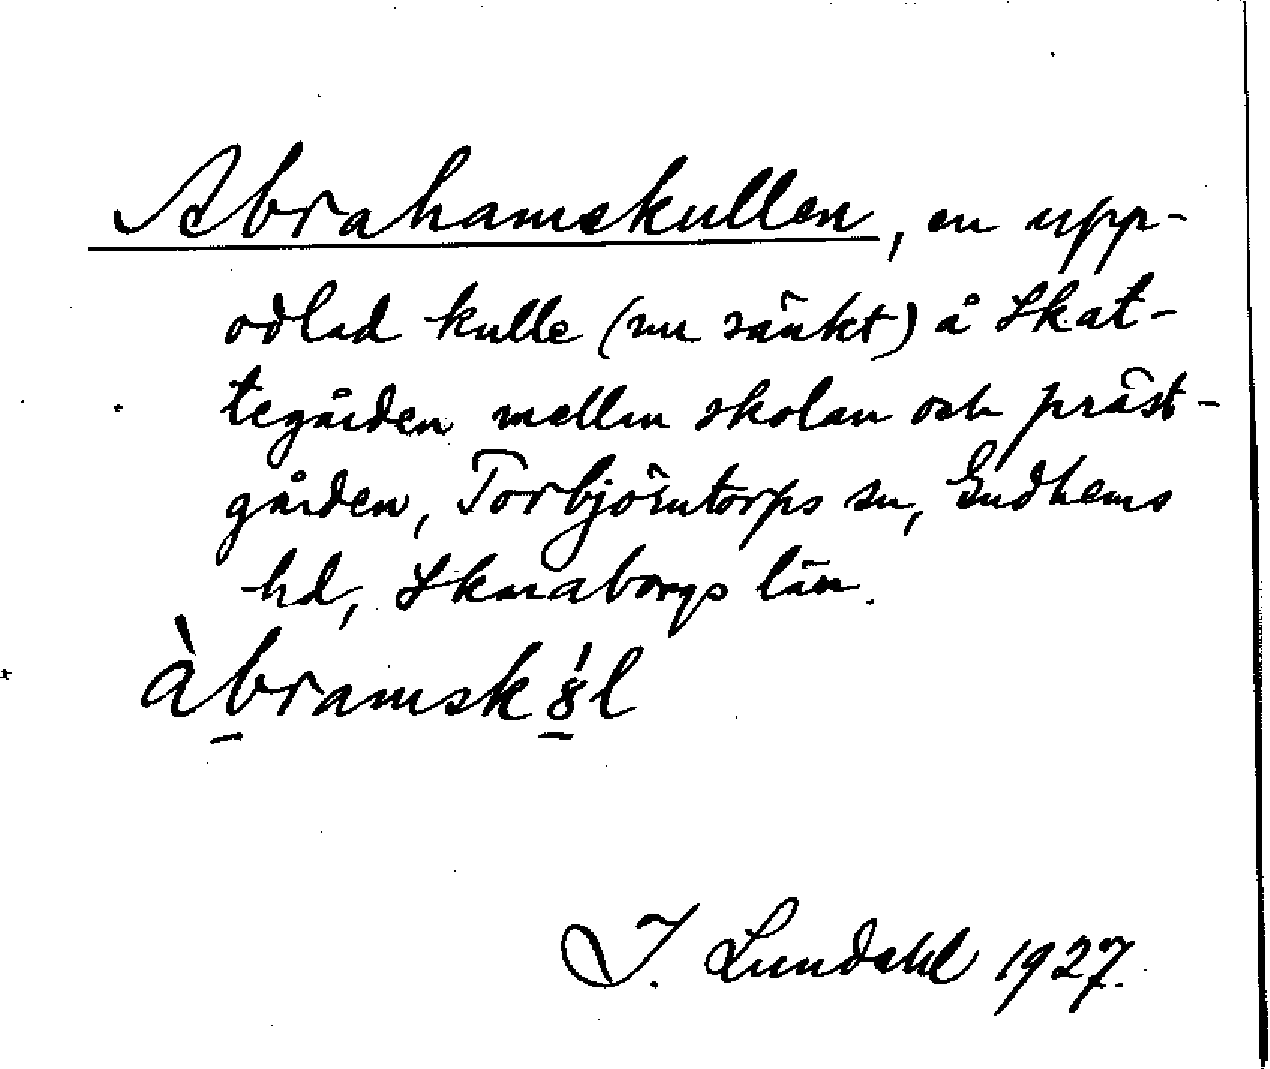 Abrahamskullen, en upp-
odlad kulle (nu sänkt) å Skat-
tegården mellan skolan och präst-
gården, Torbjörntorps sn, Gudhems
hd, Skaraborgs län.
àbramsk8́l
I. Lundahl 1927.